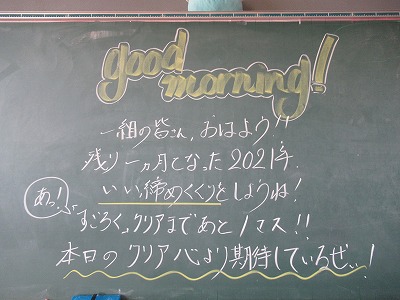 good
morning!
一組の皆さん、おはよう!!
残り一ヵ月となった2021年.
いい締めくくりをしようね!
あっ!
すごろく、クリアまであと1マス!!
本日のクリア心より期待しているぜぃ!